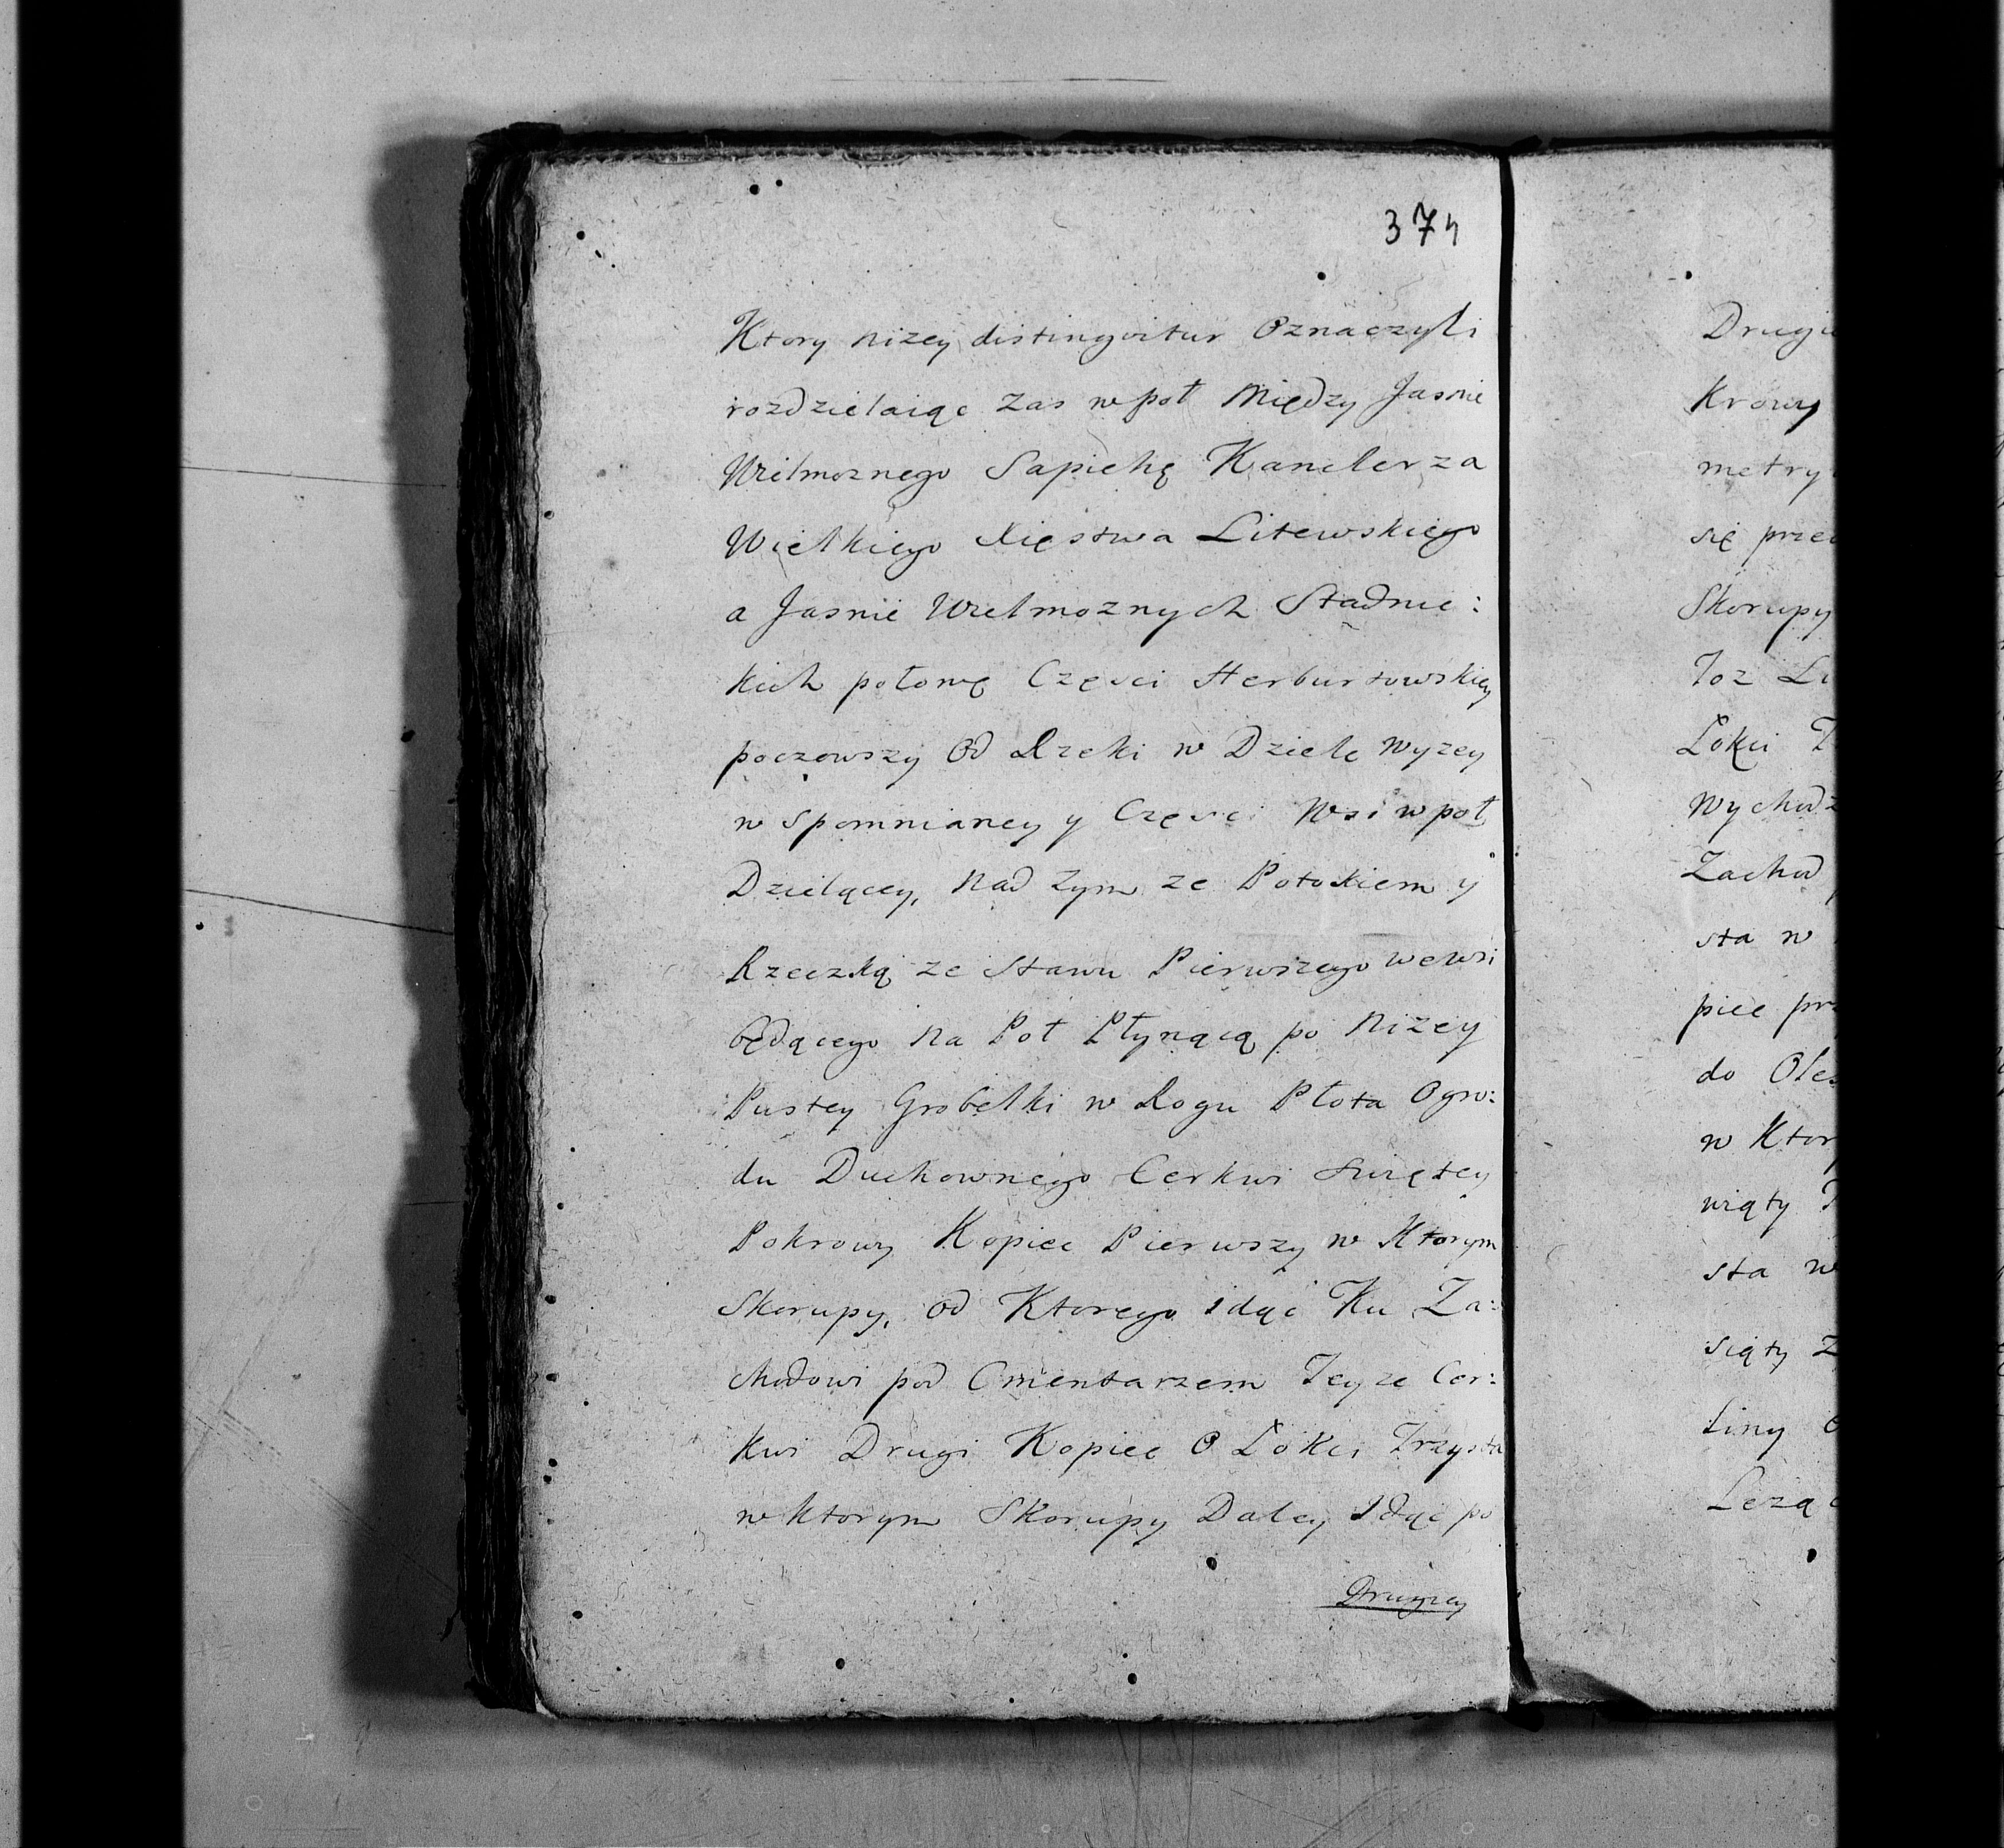 374
Ktory nizey distingvitur Oznaczyli
rozdzielaiąc Zas wpoł Między Jasnie
Wielmoznego Sapiehę Kanclerza
Wielkiego Xięstwa Litewskiego
a Jasnie Wielmoznych Stadnic:
kich połowę Częsci Herburtowskiey
poczowszy Od Rzeki w Dziele wyzey
wspomnianey y Częsci Wsi wpoł
Dzielącey, Nad tym ze Potokiem y
Rzeczką ze Stawu Pierwszego wewsi
będącego Na Poł Płynącą po Nizey
Pustey Grobelki w Rogu Płota Ogro:
du Duchownego Cerkwi Swiętey
Pokrowy Kopiec Pierwszy w Ktorym
Skorupy, od Ktorego idąc Ku Za:
chodowi pod Cmentarzem Teyze Cer:
kwi Drugi Kopiec O Łokci Trzysta
w ktorym Skorupy Daley Idąc po
Drugiey
Krowy
metry
się prze
Skorupy
Toz
Łokci
Wychodz
Zachod
sta w
piec prz
do Oles
w Ktor
wiąty
sta w
siąty
Liny
Lezą